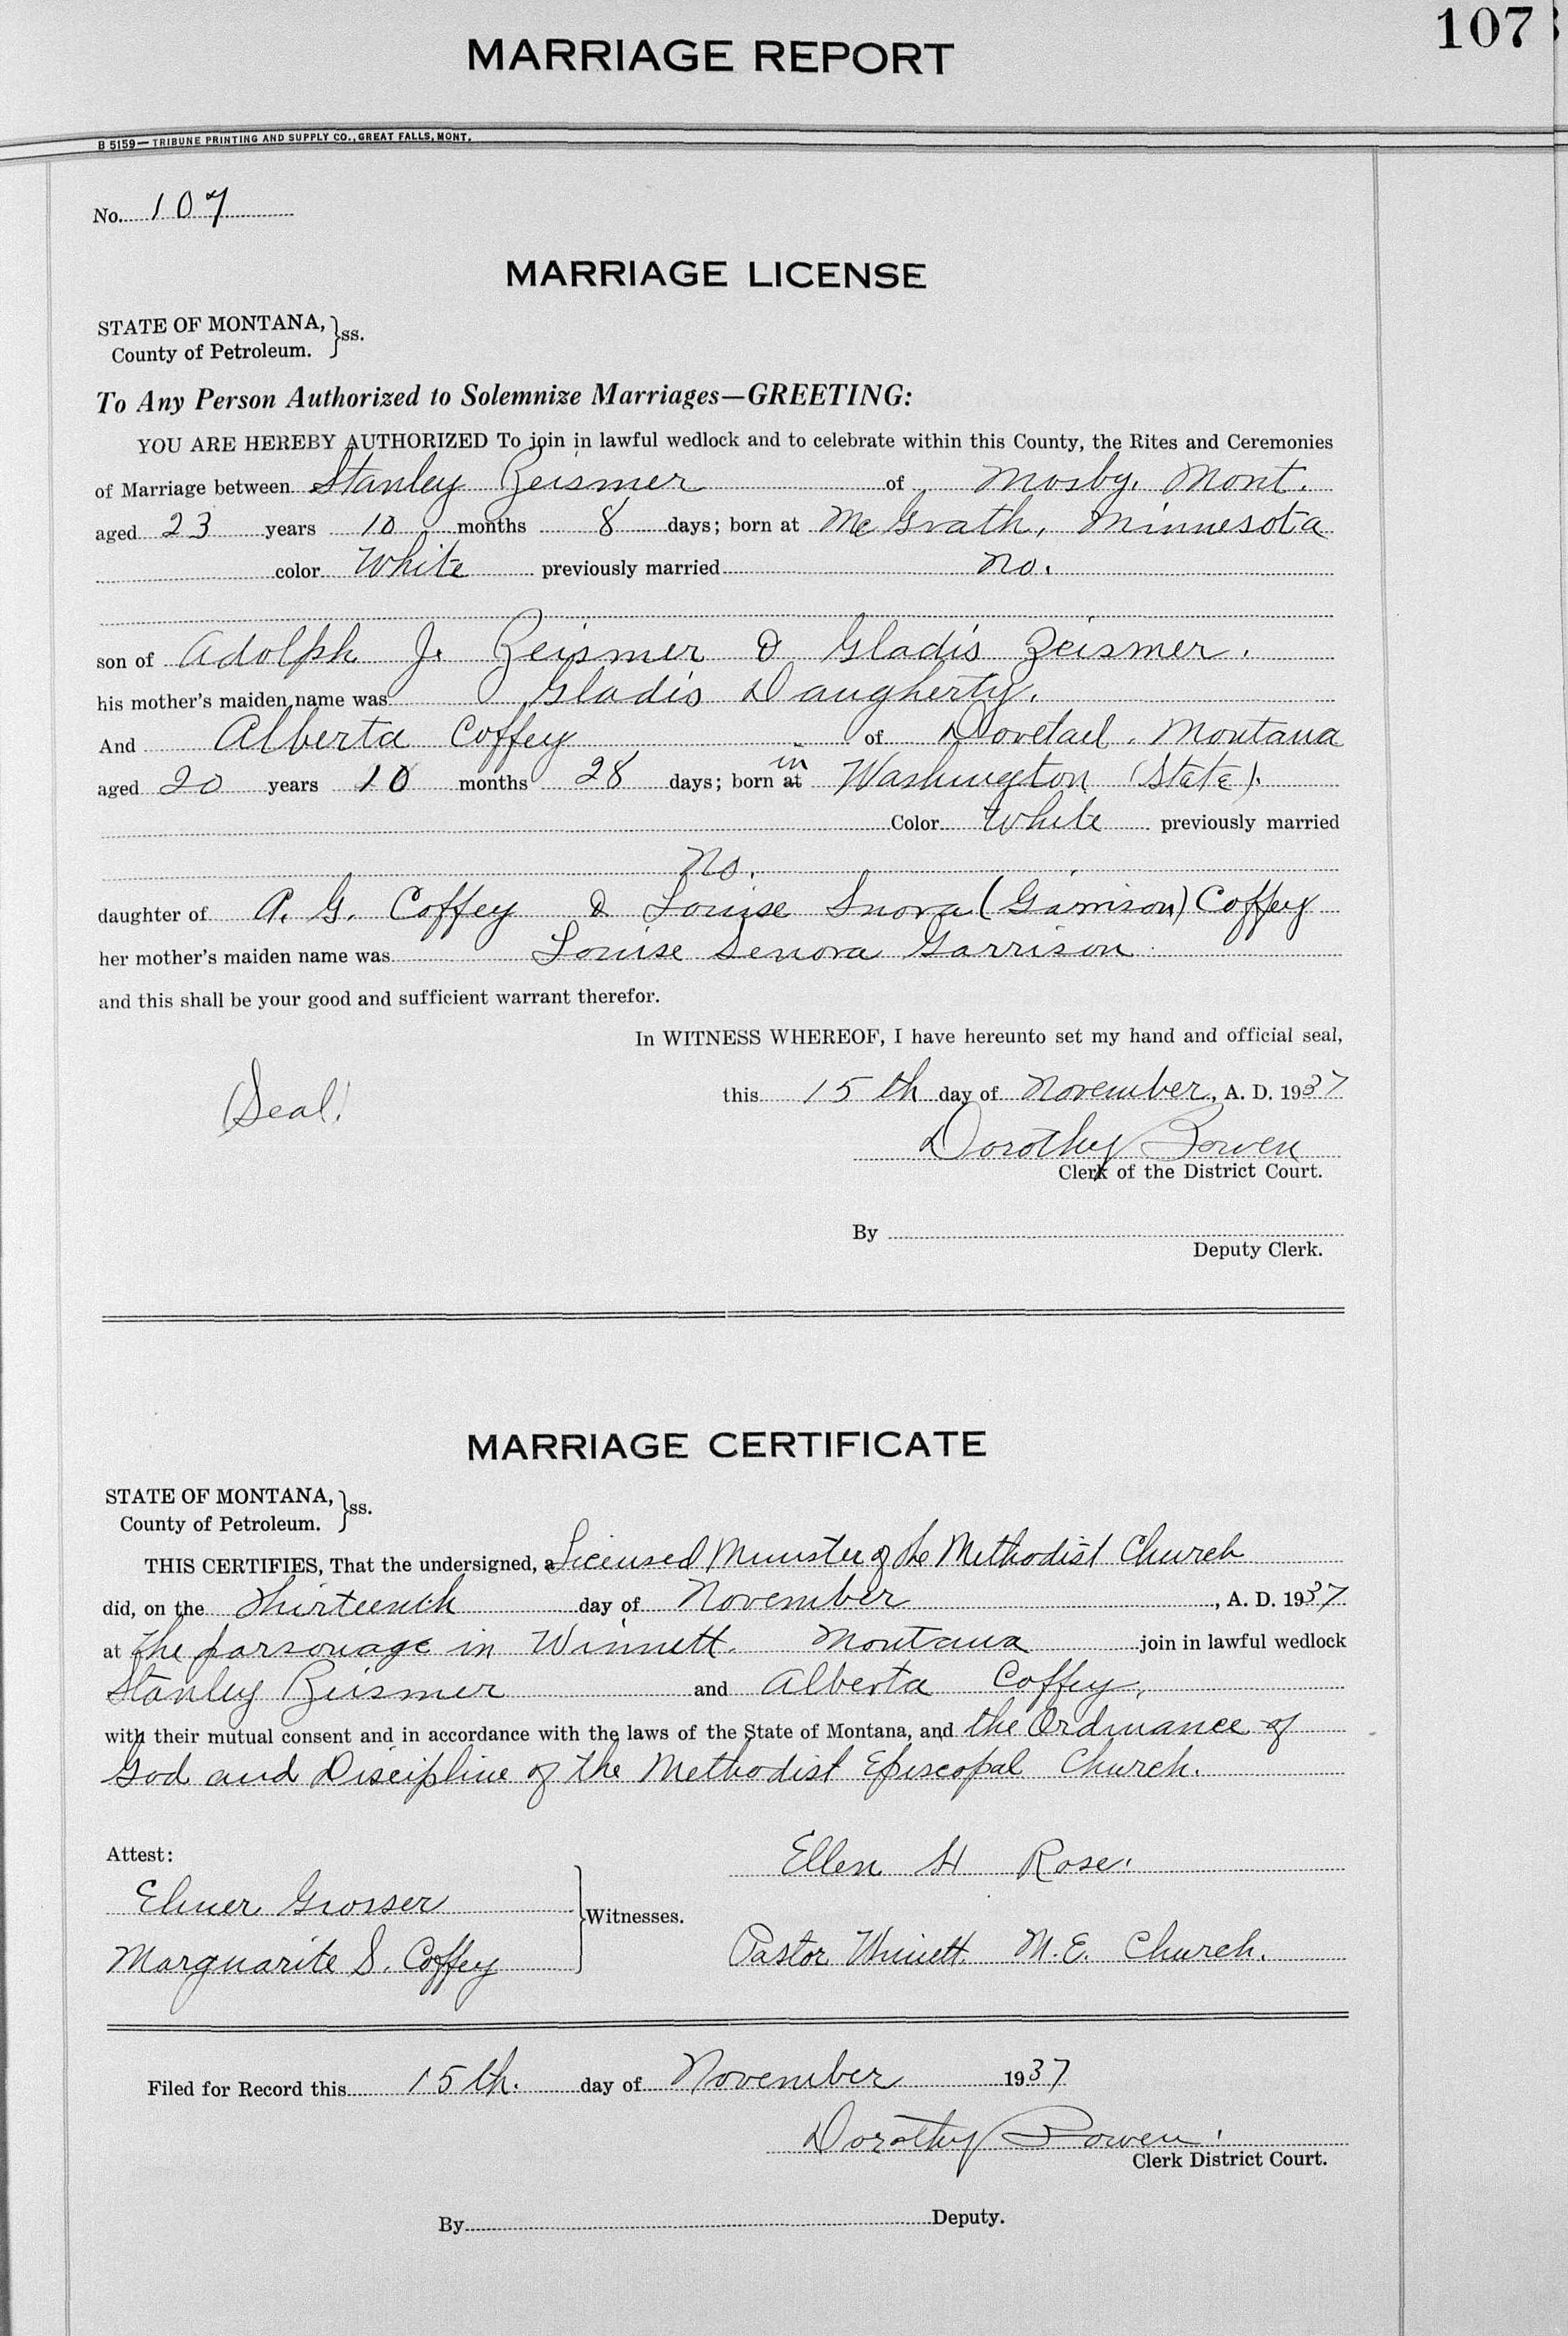 107
MARRIAGE REPORT
B 5159— TRIBUNE PRINTING AND SUPPLY CO., GREAT FALLS, MONT.
No. 107
MARRIAGE LICENSE
STATE OF MONTANA,
County of Petroleum. } ss.
To Any Person Authorized to Solemnize Marriages—GREETING:
YOU ARE HEREBY AUTHORIZED To join in lawful wedlock and to celebrate within this County, the Rites and Ceremonies
of Marriage between Stanley Zeismer of Mosby, Mont.
aged 23 years 10 months 8 days; born at McGrath, Minnesota
color White previously married no.
son of Adolph J. Zeismer & Gladis Zeismer.
his mother's maiden name was Gladis Daugherty.
And Alberta Coffey of Dovetail, Montana
aged 20 years 10 months 28 days; born at in Washington (State).
Color White previously married
No.
daughter of A. G. Coffey & Louise Snora (Garrison) Coffey
her mother's maiden name was Louise Senora Garrison
and this shall be your good and sufficient warrant therefor.
In WITNESS WHEREOF, I have hereunto set my hand and official seal,
Seal. this 15th day of November, A. D. 1937
Dorothy Bowen
Clerk of the District Court.
By
Deputy Clerk.
MARRIAGE CERTIFICATE
STATE OF MONTANA,
County of Petroleum. } ss.
THIS CERTIFIES, That the undersigned, a Licensed Minister of the Methodist Church
did, on the Thirteenth day of November, A. D. 1937
at the parsonage in Winnett, Montana join in lawful wedlock
Stanley Zeismer and Alberta Coffey,
with their mutual consent and in accordance with the laws of the State of Montana, and the Ordinance of
God and Discipline of the Methodist Episcopal Church.
Attest:
Ellen H Rose.
Elmer Grosser
Witnesses.
Marguarite S. Coffey
Pastor Winnett M.E. Church.
Filed for Record this 15th. day of November 1937
Dorothy Bowen.
Clerk District Court.
By Deputy.